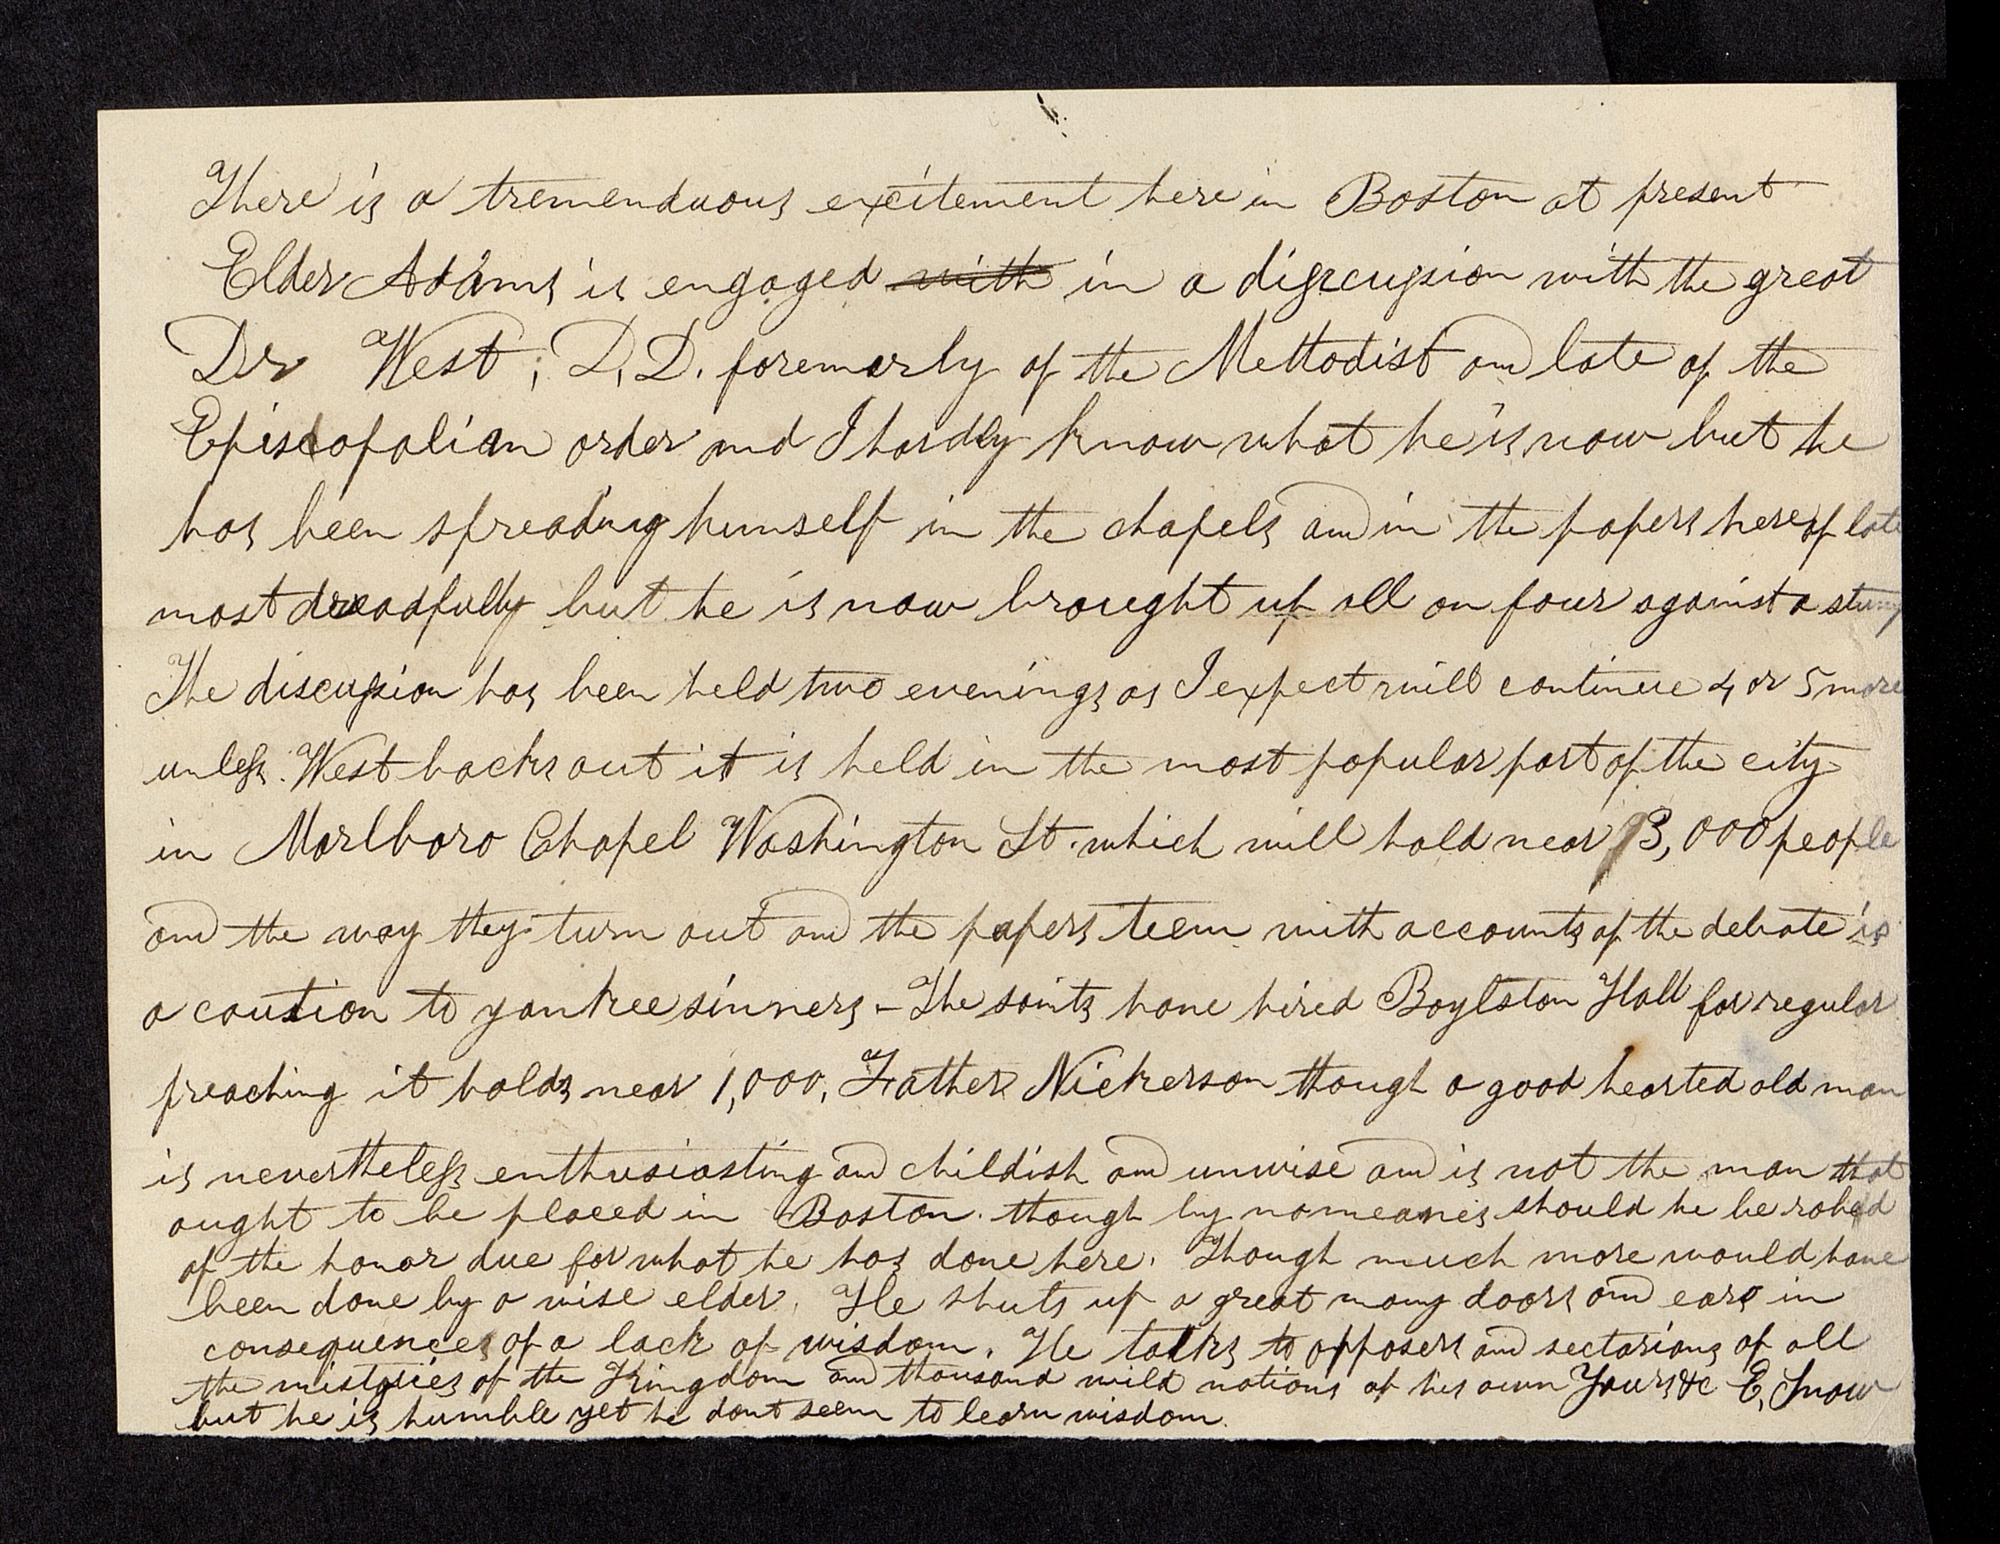 There is a tremenduous excitement here in Boston at present
Elder Adams is engaged with in a disscussion with the great
Dr West, D,D. foremerly of the Methodist and late of the
Episcopalian order and I hardly know what he is now but he
has been spreading himself in the chapels and in the papers here of late
most dreadfully but he is now brought up all on four against a stump
The discussion has been held two evenings as I expect will continue 4 or 5 more
unless West backs out it is held in the most popular part of the city
in Marlboro Chapel Washington St. which will hold near 3,000 people
and the way they turn out and the papers teem with accounts of the debate is
a caution to yankee sinners - The saints have hired Boylston Hall for regular
preaching it holds near 1,000, Father Nickerson though a good hearted old man
is nevertheless enthusiasting and childish and unwise and is not the man that
ought to be placed in Boston. though by nomeanes should he be robed
of the honor due for what he has done here. Though much more would have
been done by a wise elder. He shuts up a great many doors and ears in
consequences of a lack of wisdom. He talks to opposers and sectarians of all
the misteries of the Kingdom and thousand wild notions of his own Yours &c E, Snow
but he is humble yet he dont seem to learn wisdom.